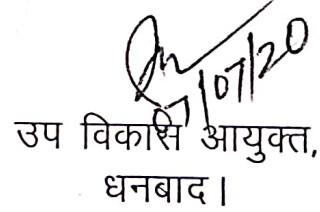 7/07/20
उप विकास आयुक्त,
धनबाद।